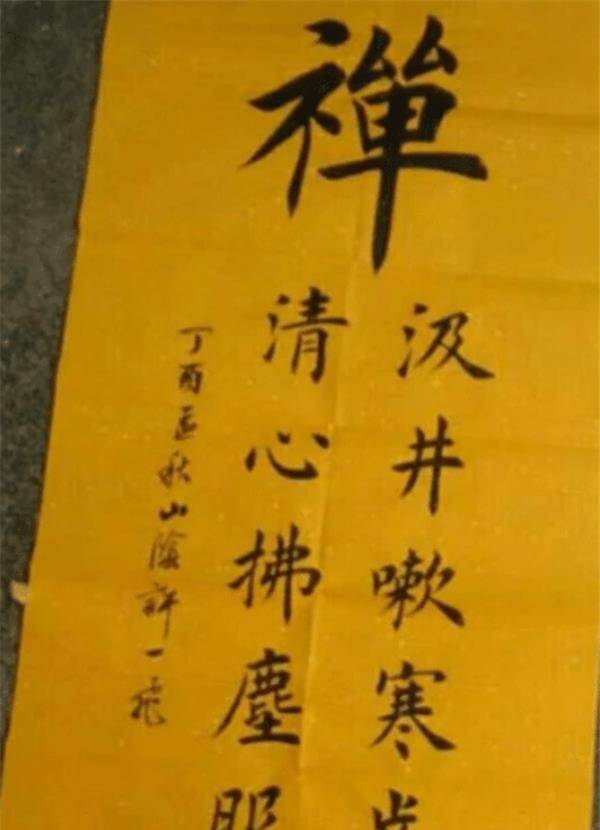 禪
汲井嗽寒
清心拂塵服
丁酉孟秋山陰許一飛